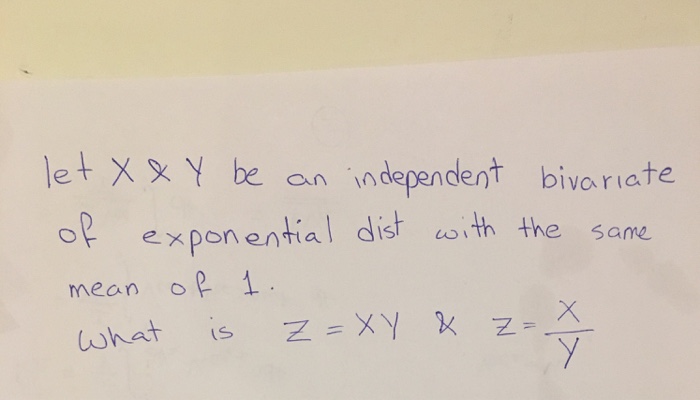 let X & Y be an independent bivariate
of exponential dist with the same
mean of 1.
What is Z = XY & Z = X/Y